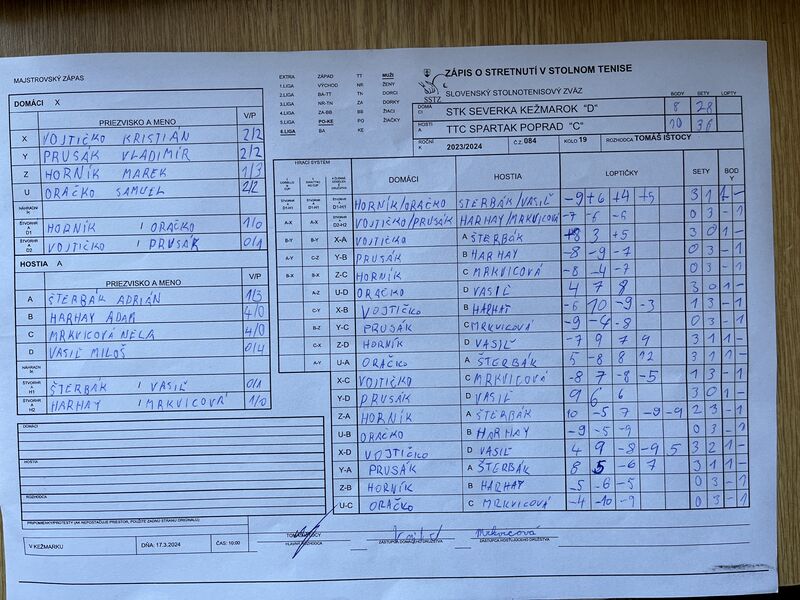 MAJSTROVSKÝ ZÁPAS
EXTRA ZÁPAD TT MUŽI
1.LIGA VÝCHOD NR ŽENY
2.LIGA BA-TT TN DORCI
3.LIGA NR-TN ZA DORKY
4.LIGA ZA-BB BB ŽIACI
5.LIGA PO-KE PO ŽIAČKY
6.LIGA BA KE
SSTZ
ZÁPIS O STRETNUTÍ V STOLNOM TENISE
SLOVENSKÝ STOLNOTENISOVÝ ZVÄZ
BODY SETY LOPTY
DOMÁCI STK SEVERKA KEŽMAROK "D" 8 28
HOSTIA TTC SPARTAK POPRAD "C" 10 36
ROČNÍK 2023/2024 Č.Z. 084 KOLO 19 ROZHODCA TOMÁŠ IŠTOCY
DOMÁCI X
PRIEZVISKO A MENO V/P
X VOJTIČKO KRISTIÁN 2/2
Y PRUSÁK VLADIMÍR 2/2
Z HORNÍK MAREK 1/3
U ORAČKO SAMUEL 2/2
NÁHRADNÍK
ŠTVORHRA D1 HORNÍK / ORAČKO 1/0
ŠTVORHRA D2 VOJTIČKO / PRUSÁK 0/1
HOSTIA A
PRIEZVISKO A MENO V/P
A ŠTERBÁK ADRIÁN 1/3
B HARHAY ADAM 4/0
C MRKVICOVÁ NELA 4/0
D VASIĽ MILOŠ 0/4
NÁHRADNÍK
ŠTVORHRA H1 ŠTERBÁK / VASIĽ 0/1
ŠTVORHRA H2 HARHAY / MRKVICOVÁ 1/0
HRACÍ SYSTÉM
DOMÁCI HOSTIA LOPTIČKY SETY BODY
ŠTVORHRA D1-H1 HORNÍK/ORAČKO ŠTERBÁK/VASIĽ -9 +6 +4 +5 3 1 1 -
A-X ŠTVORHRA D2-H2 VOJTIČKO/PRUSÁK HARHAY/MRKVICOVÁ -7 -6 -6 0 3 - 1
B-Y B-Y X-A VOJTIČKO A ŠTERBÁK +8 3 +5 3 0 1 -
A-Y C-Z Y-B PRUSÁK B HARHAY -8 -9 -7 0 3 - 1
B-X B-X Z-C HORNÍK C MRKVICOVÁ -8 -4 -7 0 3 - 1
A-Z U-D ORAČKO D VASIĽ 4 7 8 3 0 1 -
C-Y X-B VOJTIČKO B HARHAY -6 10 -9 -3 1 3 - 1
B-Z Y-C PRUSÁK C MRKVICOVÁ -9 -4 -8 0 3 - 1
C-X Z-D HORNÍK D VASIĽ -7 9 7 9 3 1 1 -
A-Y U-A ORAČKO A ŠTERBÁK 5 -8 8 12 3 1 1 -
X-C VOJTIČKO C MRKVICOVÁ -8 7 -8 -5 1 3 - 1
Y-D PRUSÁK D VASIĽ 9 6 6 3 0 1 -
Z-A HORNÍK A ŠTERBÁK 10 -5 7 -9 -9 2 3 - 1
U-B ORAČKO B HARHAY -9 -5 -9 0 3 - 1
X-D VOJTIČKO D VASIĽ 4 9 -8 -9 5 3 2 1 -
Y-A PRUSÁK A ŠTERBÁK 8 5 -6 7 3 1 1 -
Z-B HORNÍK B HARHAY -5 -6 -5 0 3 - 1
U-C ORAČKO C MRKVICOVÁ -4 -10 -9 0 3 - 1
DOMÁCI
HOSTIA
ROZHODCA
PRIPOMIENKY/PROTESTY (AK NEPOSTAČUJE PRIESTOR, POUŽITE ZADNÚ STRANU ORIGINÁLU)
V KEŽMARKU DŇA: 17.3.2024 ČAS: 10:00
HLAVNÝ ROZHODCA ZÁSTUPCA DOMÁCEHO DRUŽSTVA ZÁSTUPCA HOSŤUJÚCEHO DRUŽSTVA
Mrkvicová